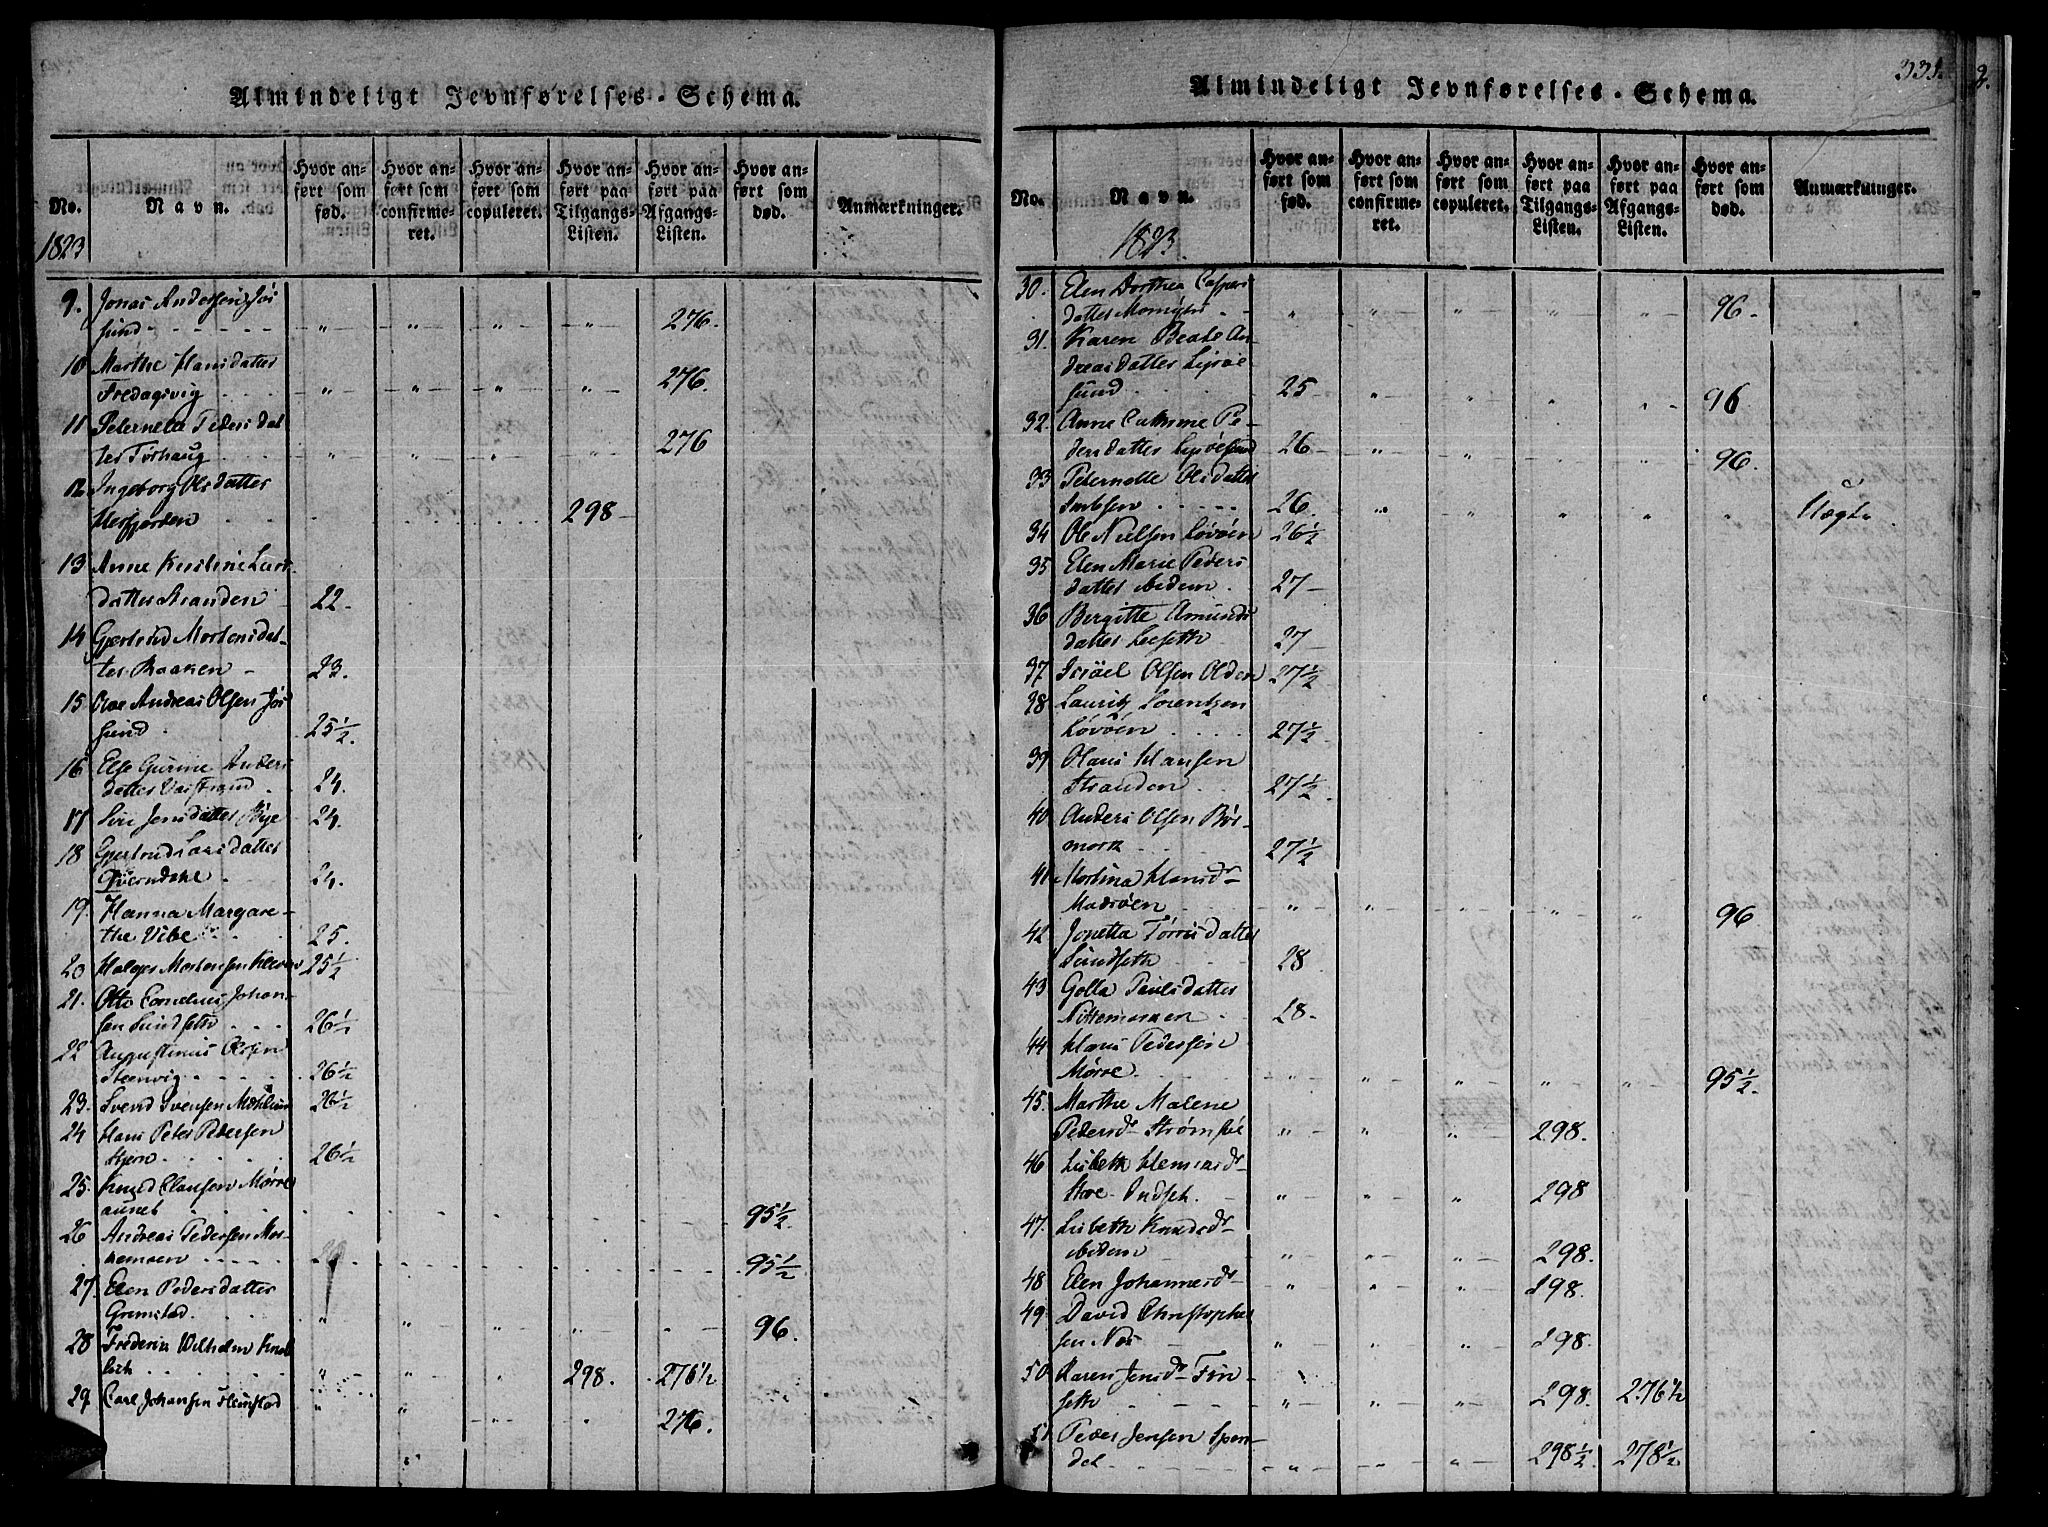 Almindeligt Jevnførelses-Schema.
No.
Navn.
Hvor an-ført som fød.
Hvor an-ført som confirme-ret.
Hvor an-ført som copuleret.
Hvor an-ført paa Tilgangs-Listen.
Hvor an-ført paa Afgangs-Listen.
Hvor an-ført som død.
Anmærkninger.
1823
9. Jonas Andersen Jøs
sund - - - - - " " " " 276.
10 Marthe Hansdatter
Fredagsvig . . . " " " " 276.
11 Peternela Peders dat
ter Torhaug " " " " 276
12. Ingeborg Olsdatter
. . . 298
13 Anne Kirstine Lars
datter Stranden 22.
14 Gjertrud Mortensdat-
ter Baaken - 23.
15 Ove Andreas Olsen Jøs
sund . 25½.
16 Else Gurine Anders
datter 24.
17 Siri Jensdatter Bye 24.
18 Gjertrud Larsdatter
Qverndahl . 24.
19. Hanna Margare-
the Vibe . . 25.
20 Holger Mortensen 25½
21. Otto Cornelius Johan-
sen Sundseth . . . 26½
22 Augustinus Olsen
Steenvig . . . . 26½
23. Svend Svensen 26½
24 Hans Peter Pedersen
Stjern . . . . 26½
25. Knud Clausen Mørre
aunet . . . . . . 95½.
26 Andreas Pedersen
. . . . 95½
27. Elen Pedersdatter
Grønstad . . . " " " - 96.
28 Frederik Wilhelm
. . . . . " " " 298. 276½
29 Carl Johansen " " " " 276.
Almindeligt Jevnførelses-Schema.
331.
2.
No.
Navn.
1823.
Hvor an-ført som fød.
Hvor an-ført som confirme-ret.
Hvor an-ført som copuleret.
Hvor an-ført paa Tilgangs-Listen.
Hvor an-ført paa Afgangs-Listen.
Hvor an-ført som død.
Anmærkninger.
30. Elen Dorthea Caspers
datter . . " " " " " 96.
31. Karen Beate An-
dreas datter Lysøe
sund . 25 " " " " 96
32. Anne Cathrine Pe-
dersdatter Lysøesund 26 " " " " 96.
33 Peternelle Olsdatter
. . . . 26. " " " " " Uægte.
34 Ole Nielsen Løvøen 26½
35 Elen Marie Peders
datter ibidem . 27
36 Birgitte Amunds
datter Leeseth 27
37 Isråel Olsen Olden 27½
38 Lauritz Lorentzen
Løvøen . . . . 27½
39 Hans Hansen
Stranden . . . 27½.
40. Anders Olsen Bør-
mark . . . 27½
41 Martina Hansdr
Madsøen . . . " " " " " 96
42 Jonetta Tørrisdatter
Sundseth 28
43 Golla Paulsdatter
. . 28.
44 Hans Pedersen
Mørre . . . " " " " " 95½.
45. Marthe Malene
Pedersdr " " " 298.
46 Lisbeth dr
" " " 298
47. Lisbeth Knudsdr
ibidem " " " 298.
48 Elen Johannesdr " " " 298.
49. David Christopher
sen Næs " " " 298.
50 Karen Jensdr Fin
seth . " " " 298. 276½
51 Peder Jensen
. . . . " " " 298½. 278½